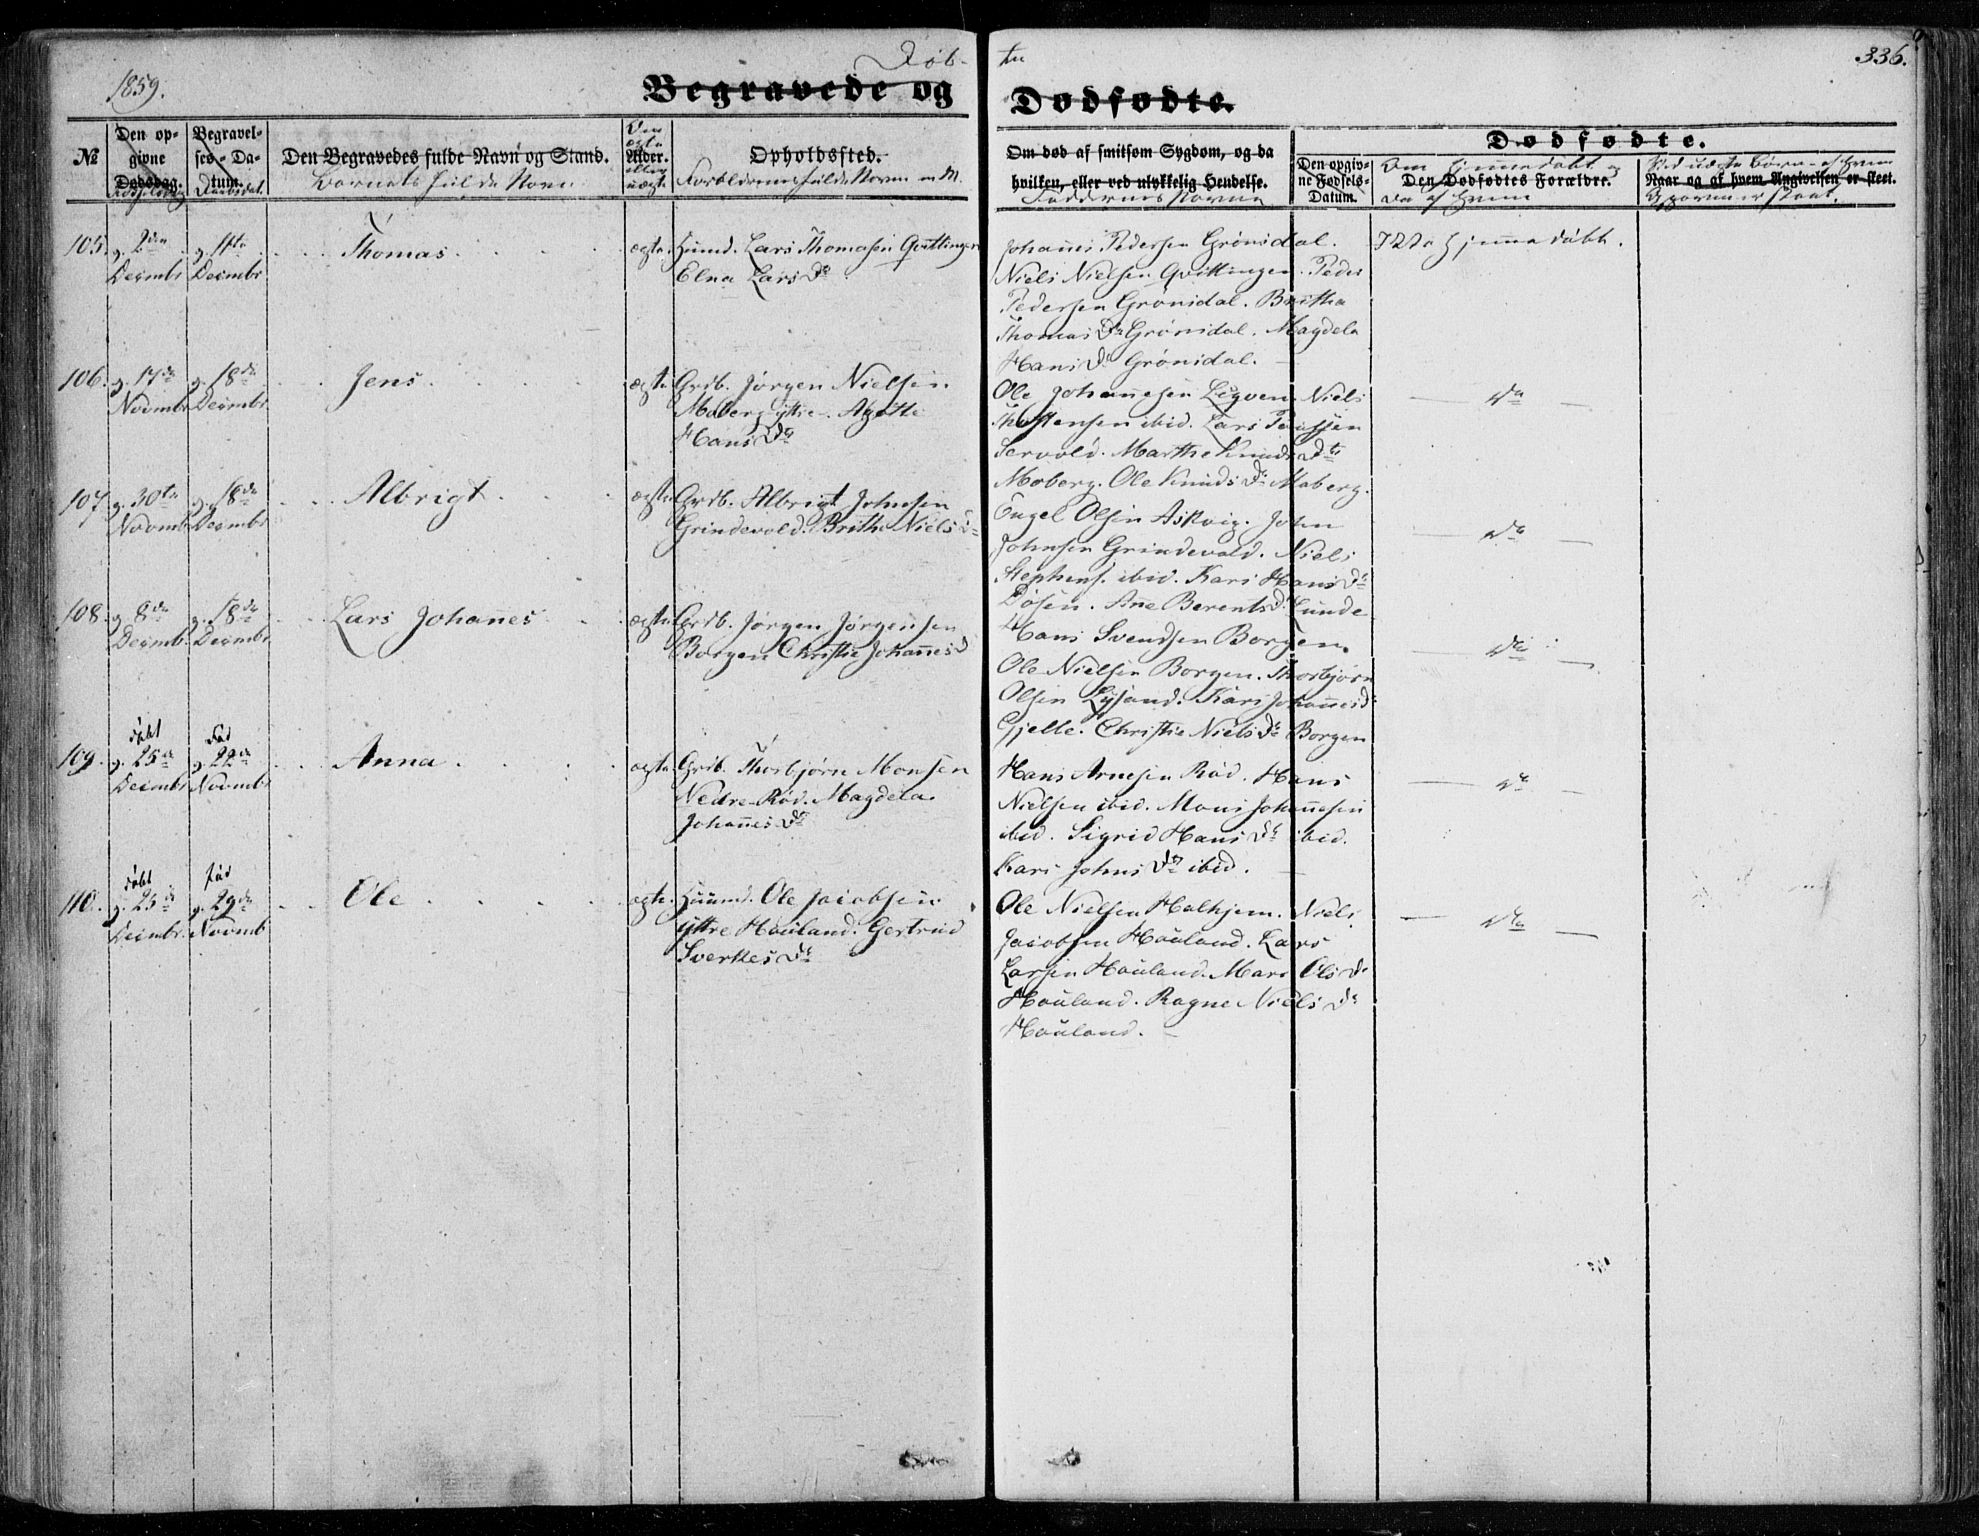 1859.
Døb-
te
336.
Begravede og Dødfødte.
№
Den opgivne Dødsdag.
Fødselsdag
Begravelses-Datum.
Daabsdat.
Den Begravedes fulde Navn og Stand.
Barnets fulde Navn
Alder.
Om ægte eller uægte
Opholdssted.
Forældrenes fulde Navne
Om død af smitsom Sygdom, og da
hvilken, eller ved ulykkelig Hendelse.
Faddernes Navne
Dødfødte.
Den opgivne Fødsels-Datum.
Om hjemmedøbt og
Den Dødfødtes Forældre.
da af hvem
Naar og af hvem Angivelsen er skeet.
105. g. 2den Decembr g. 11te Decembr Thomas ægte. Huusmd. Lars Thomasen Qvittingen
Elna Lars Dr
Johannes Pedersen Grønsdal.
Niels Nielsen Qvittingen. Peder
Pedersen Grønsdal. Britha
Thomas Dr Grønsdal. Magdela
Hans Dr Grønsdal.
Ikke hjemmedøbt.
106. g. 17de Novmbr g. 18de Decmbr Jens ægte Grdb. Jørgen Nielsen
Moberg yttre. Agathe
Hans Dr
Ole Johannesen Ligven. Niels
Thostensen ibid. Lars
Marthe Knuds Dtr
Moberg. Ole Knuds Dr Moberg.
Do
107. g. 30te Novmbr g. 18de Decmbr Albrigt ægte Grdb. Albrigt Johnsen
Grindevold. Brithe Niels Dr
Engel Olsen Askvig. John
Johnsen Grindevold. Niels
Stephens. ibid. Kari Hans Dr
Døsen. Ane Berents Dr Lunde
Do
108. g. 8de Decmbr g. 18de Decmbr Lars Johannes ægte Grdb. Jørgen Jørgensen
Borgen Christie Johannes D
Hans Svendsen Borgen.
Ole Nielsen Borgen. Thorbjørn
Olsen Lysand. Kari Johannes Dr
Gjelle. Christie Niels Dr Borgen
Do
109. døbt g. 25de Decmbr Fød g. 22de Novmbr Anna ægte Grdb. Thorbjørn Monsen
Nedre-Rød. Magdela
Johannes Dr
Hans Arnesen Rød. Hans
Nielsen ibid. Mons Johannesen
ibid. Sigrid Hans Dr ibid.
Kari Johns Dr ibid.
Do
110. døbt g. 25de Decmbr. fød g. 29de Novmb Ole ægte. Huusmd. Ole Jacobsen
yttre Houland. Gertrud
Sverkes Dr
Ole Nielsen Halhjem. Niels
Jacobsen Houland. Lars
Larsen Houland. Mari Ols Dr
Houland. Ragne Niels Dr
Houland.
Do